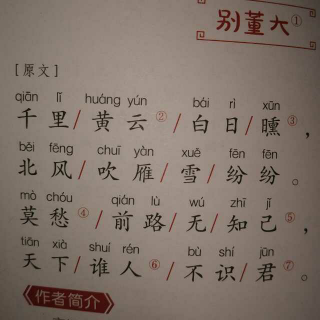 别董大①
[原文]
qiān lǐ huáng yún bái rì xūn
千里/黄云②/白日/曛③，
běi fēng chuī yàn xuě fēn fēn
北风/吹雁/雪/纷纷。
mò chóu qián lù wú zhī jǐ
莫愁④/前路/无/知己⑤，
tiān xià shuí rén bù shí jūn
天下/谁人⑥/不识/君⑦。
作者简介